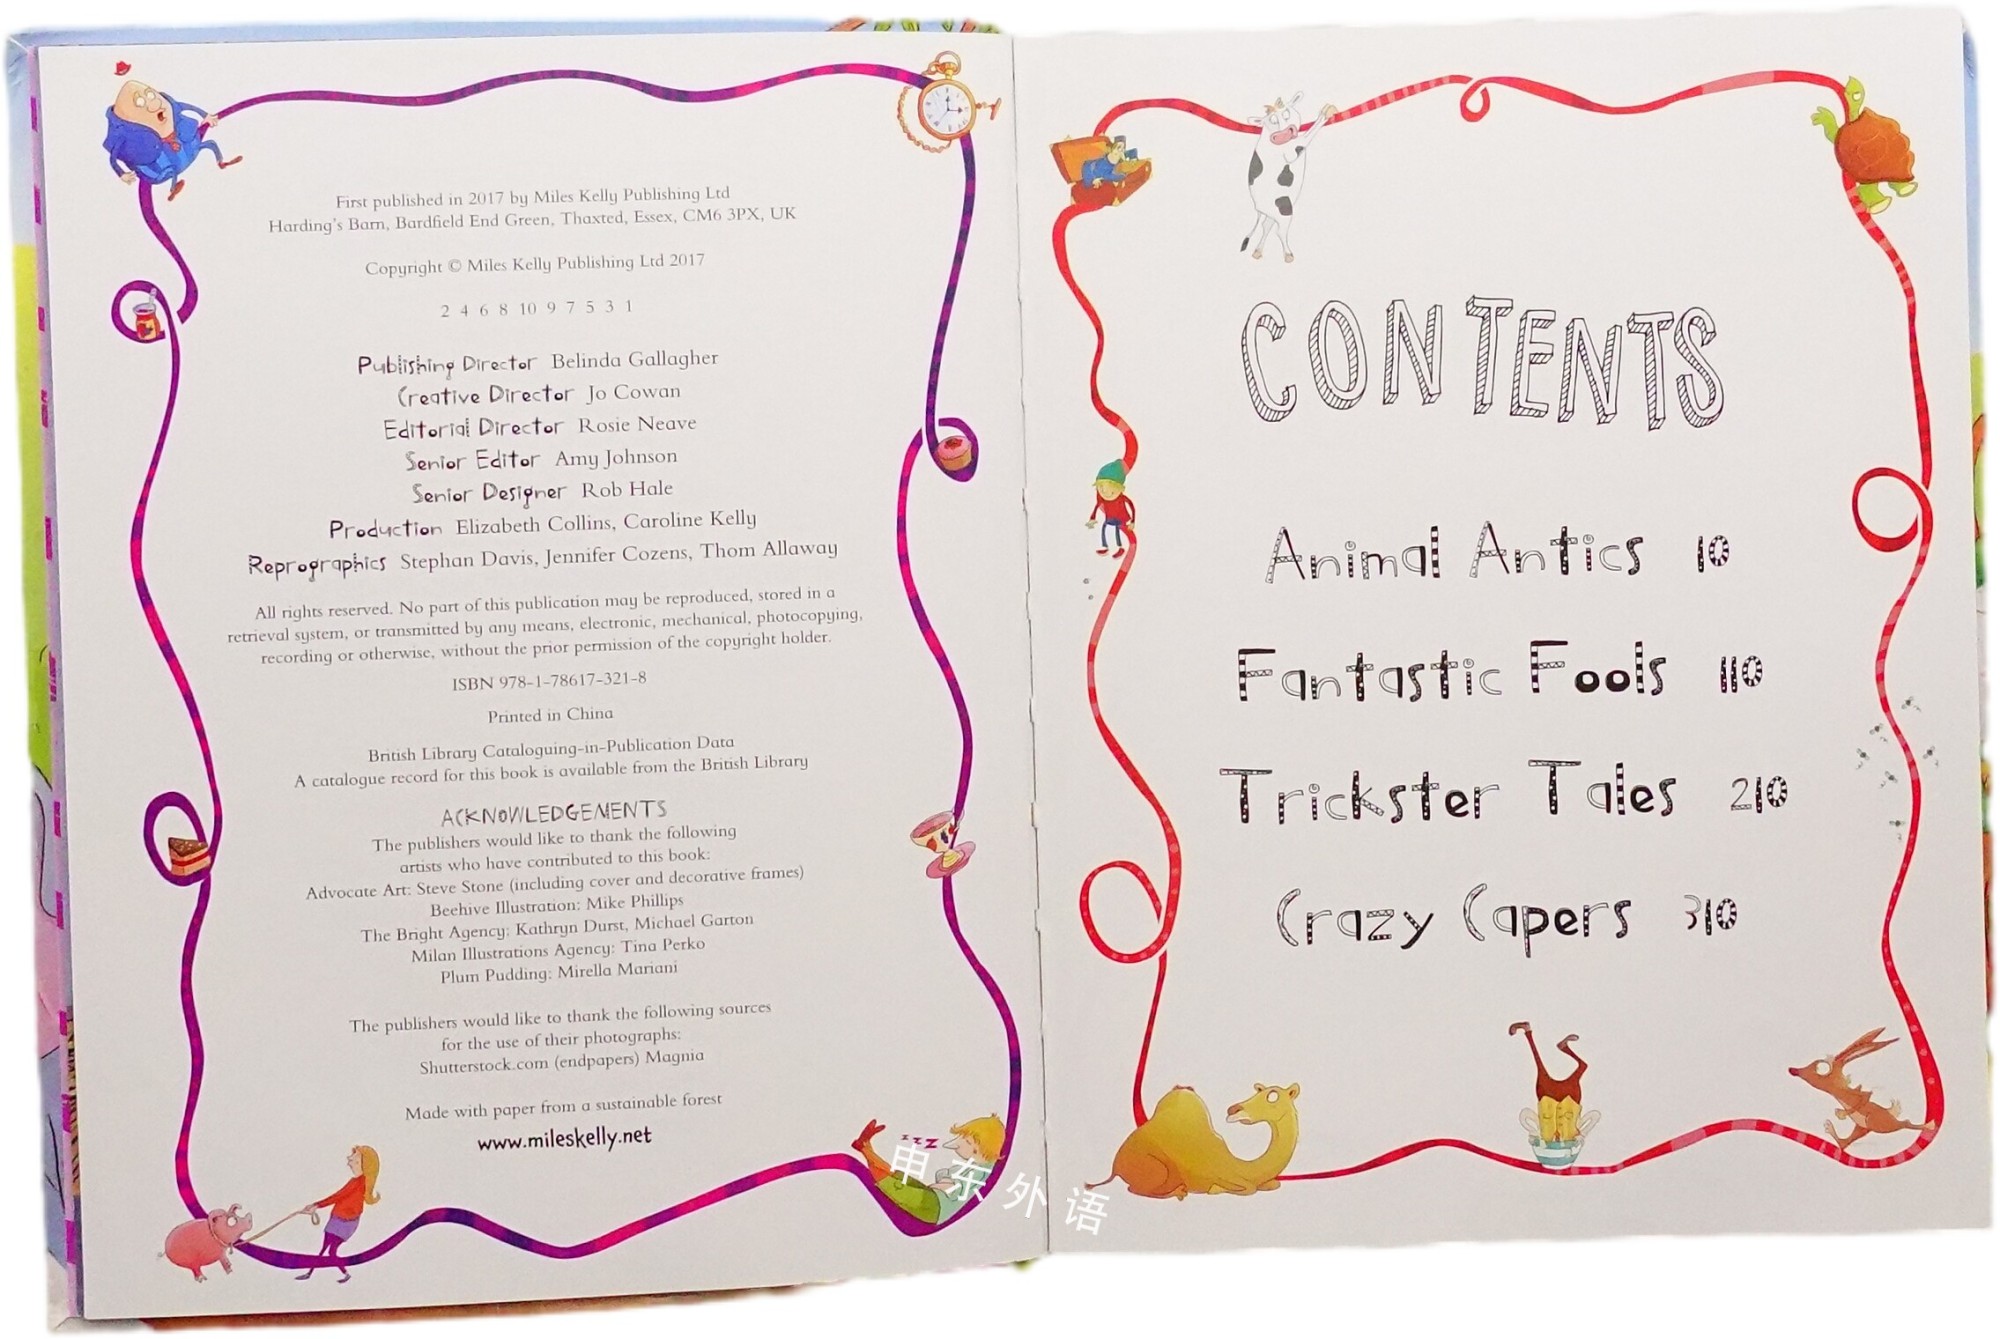 First published in 2017 by Miles Kelly Publishing Ltd
Harding's Barn, Bardfield End Green, Thaxted, Essex, CM6 3PX, UK
Copyright © Miles Kelly Publishing Ltd 2017
2 4 6 8 10 9 7 5 3 1
Publishing Director Belinda Gallagher
Creative Director Jo Cowan
Editorial Director Rosie Neave
Senior Editor Amy Johnson
Senior Designer Rob Hale
Production Elizabeth Collins, Caroline Kelly
Reprographics Stephan Davis, Jennifer Cozens, Thom Allaway
All rights reserved. No part of this publication may be reproduced, stored in a
retrieval system, or transmitted by any means, electronic, mechanical, photocopying,
recording or otherwise, without the prior permission of the copyright holder.
ISBN 978-1-78617-321-8
Printed in China
British Library Cataloguing-in-Publication Data
A catalogue record for this book is available from the British Library
ACKNOWLEDGEMENTS
The publishers would like to thank the following
artists who have contributed to this book:
Advocate Art: Steve Stone (including cover and decorative frames)
Beehive Illustration: Mike Phillips
The Bright Agency: Kathryn Durst, Michael Garton
Milan Illustrations Agency: Tina Perko
Plum Pudding: Mirella Mariani
The publishers would like to thank the following sources
for the use of their photographs:
Shutterstock.com (endpapers) Magnia
Made with paper from a sustainable forest
www.mileskelly.net
zzZ
申东外语
CONTENTS
Animal Antics 10
Fantastic Fools 110
Trickster Tales 210
Crazy Capers 310